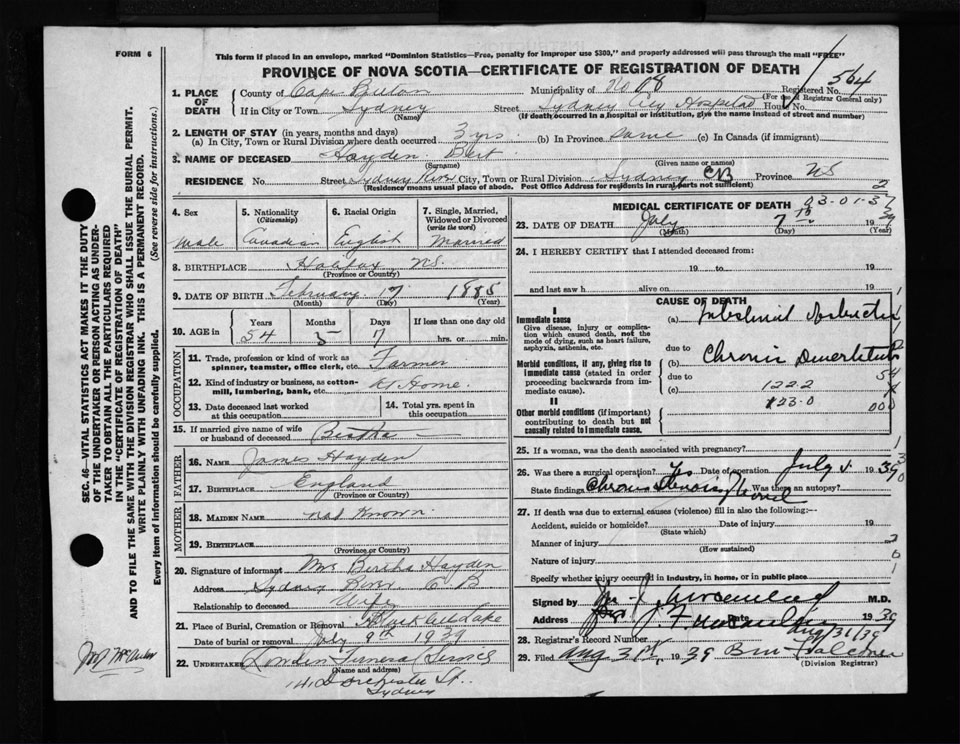 FORM 6
This form if placed in an envelope, marked "Dominion Statistics—Free, penalty for improper use $300," and properly addressed will pass through the mail "FREE"
PROVINCE OF NOVA SCOTIA—CERTIFICATE OF REGISTRATION OF DEATH
564
1. PLACE OF DEATH
County of Cape Breton
Municipality of
Registered No.
(For use of Registrar General only)
If in City or Town Sydney
(Name)
Street Sydney City Hospital House No.
(If death occurred in a hospital or institution, give the name instead of street and number)
2. LENGTH OF STAY (in years, months and days)
(a) In City, Town or Rural Division where death occurred 3 yrs. (b) In Province Same (c) In Canada (if immigrant)
3. NAME OF DECEASED Hayden Bert
(Surname) (Given name or names)
RESIDENCE No. Street Sydney River City, Town or Rural Division Sydney CB Province NS
(Residence means usual place of abode. Post Office Address for residents in rural parts not sufficient)
4. Sex
male
5. Nationality
(Citizenship)
Canadian
6. Racial Origin
English
7. Single, Married, Widowed or Divorced
(write the word)
Married
8. BIRTHPLACE Halifax NS.
(Province or Country)
9. DATE OF BIRTH February 17 1885
(Month) (Day) (Year)
10. AGE in
Years Months Days If less than one day old
54 5 17 hrs. or min.
OCCUPATION
11. Trade, profession or kind of work as spinner, teamster, office clerk, etc. Farmer
12. Kind of industry or business, as cotton-mill, lumbering, bank, etc. At Home.
13. Date deceased last worked at this occupation
14. Total yrs. spent in this occupation
15. If married give name of wife or husband of deceased Bertha
FATHER
16. Name James Hayden
17. Birthplace England
(Province or Country)
MOTHER
18. Maiden Name not known
19. Birthplace
(Province or Country)
20. Signature of informant Mrs Bertha Hayden
Address Sydney River C B
Relationship to deceased Wife
21. Place of Burial, Cremation or Removal
Lake
Date of burial or removal July 9th 1939
22. Undertaker
(Name and address)
Dorchester St.
Sydney
MEDICAL CERTIFICATE OF DEATH
23. DATE OF DEATH July 7th 1939
(Month) (Day) (Year)
24. I HEREBY CERTIFY that I attended deceased from:
19 to 19
and last saw h alive on 19
CAUSE OF DEATH
I
Immediate cause
Give disease, injury or complication which caused death, not the mode of dying, such as heart failure, asphyxia, asthenia, etc.
(a) Intestinal Obstruction
due to
Morbid conditions, if any, giving rise to immediate cause (stated in order proceeding backwards from immediate cause).
(b) Chronic
due to
(c) 1222
II
Other morbid conditions (if important) contributing to death but not causally related to I immediate cause.
123-0
25. If a woman, was the death associated with pregnancy?
26. Was there a surgical operation? Yes Date of operation July 19 39
State findings Chronic Was there an autopsy?
27. If death was due to external causes (violence) fill in also the following:—
Accident, suicide or homicide? Date of injury 19
(State which)
Manner of injury
(How sustained)
Nature of injury
Specify whether injury occurred in industry, in home, or in public place
Signed by M.D.
Address Date 1939
Aug/31/39
28. Registrar's Record Number
29. Filed Aug 31st, 1939
(Division Registrar)
SEC. 46—VITAL STATISTICS ACT MAKES IT THE DUTY
OF THE UNDERTAKER OR PERSON ACTING AS UNDERTAKER TO OBTAIN ALL THE PARTICULARS REQUIRED
IN THE "CERTIFICATE OF REGISTRATION OF DEATH"
AND TO FILE THE SAME WITH THE DIVISION REGISTRAR WHO SHALL ISSUE THE BURIAL PERMIT.
WRITE PLAINLY WITH UNFADING INK. THIS IS A PERMANENT RECORD.
Every item of information should be carefully supplied. (See reverse side for instructions.)